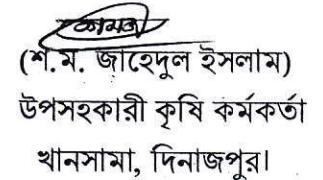 (শ.ম. জাহেদুল ইসলাম)
উপসহকারী কৃষি কর্মকর্তা
খানসামা, দিনাজপুর।